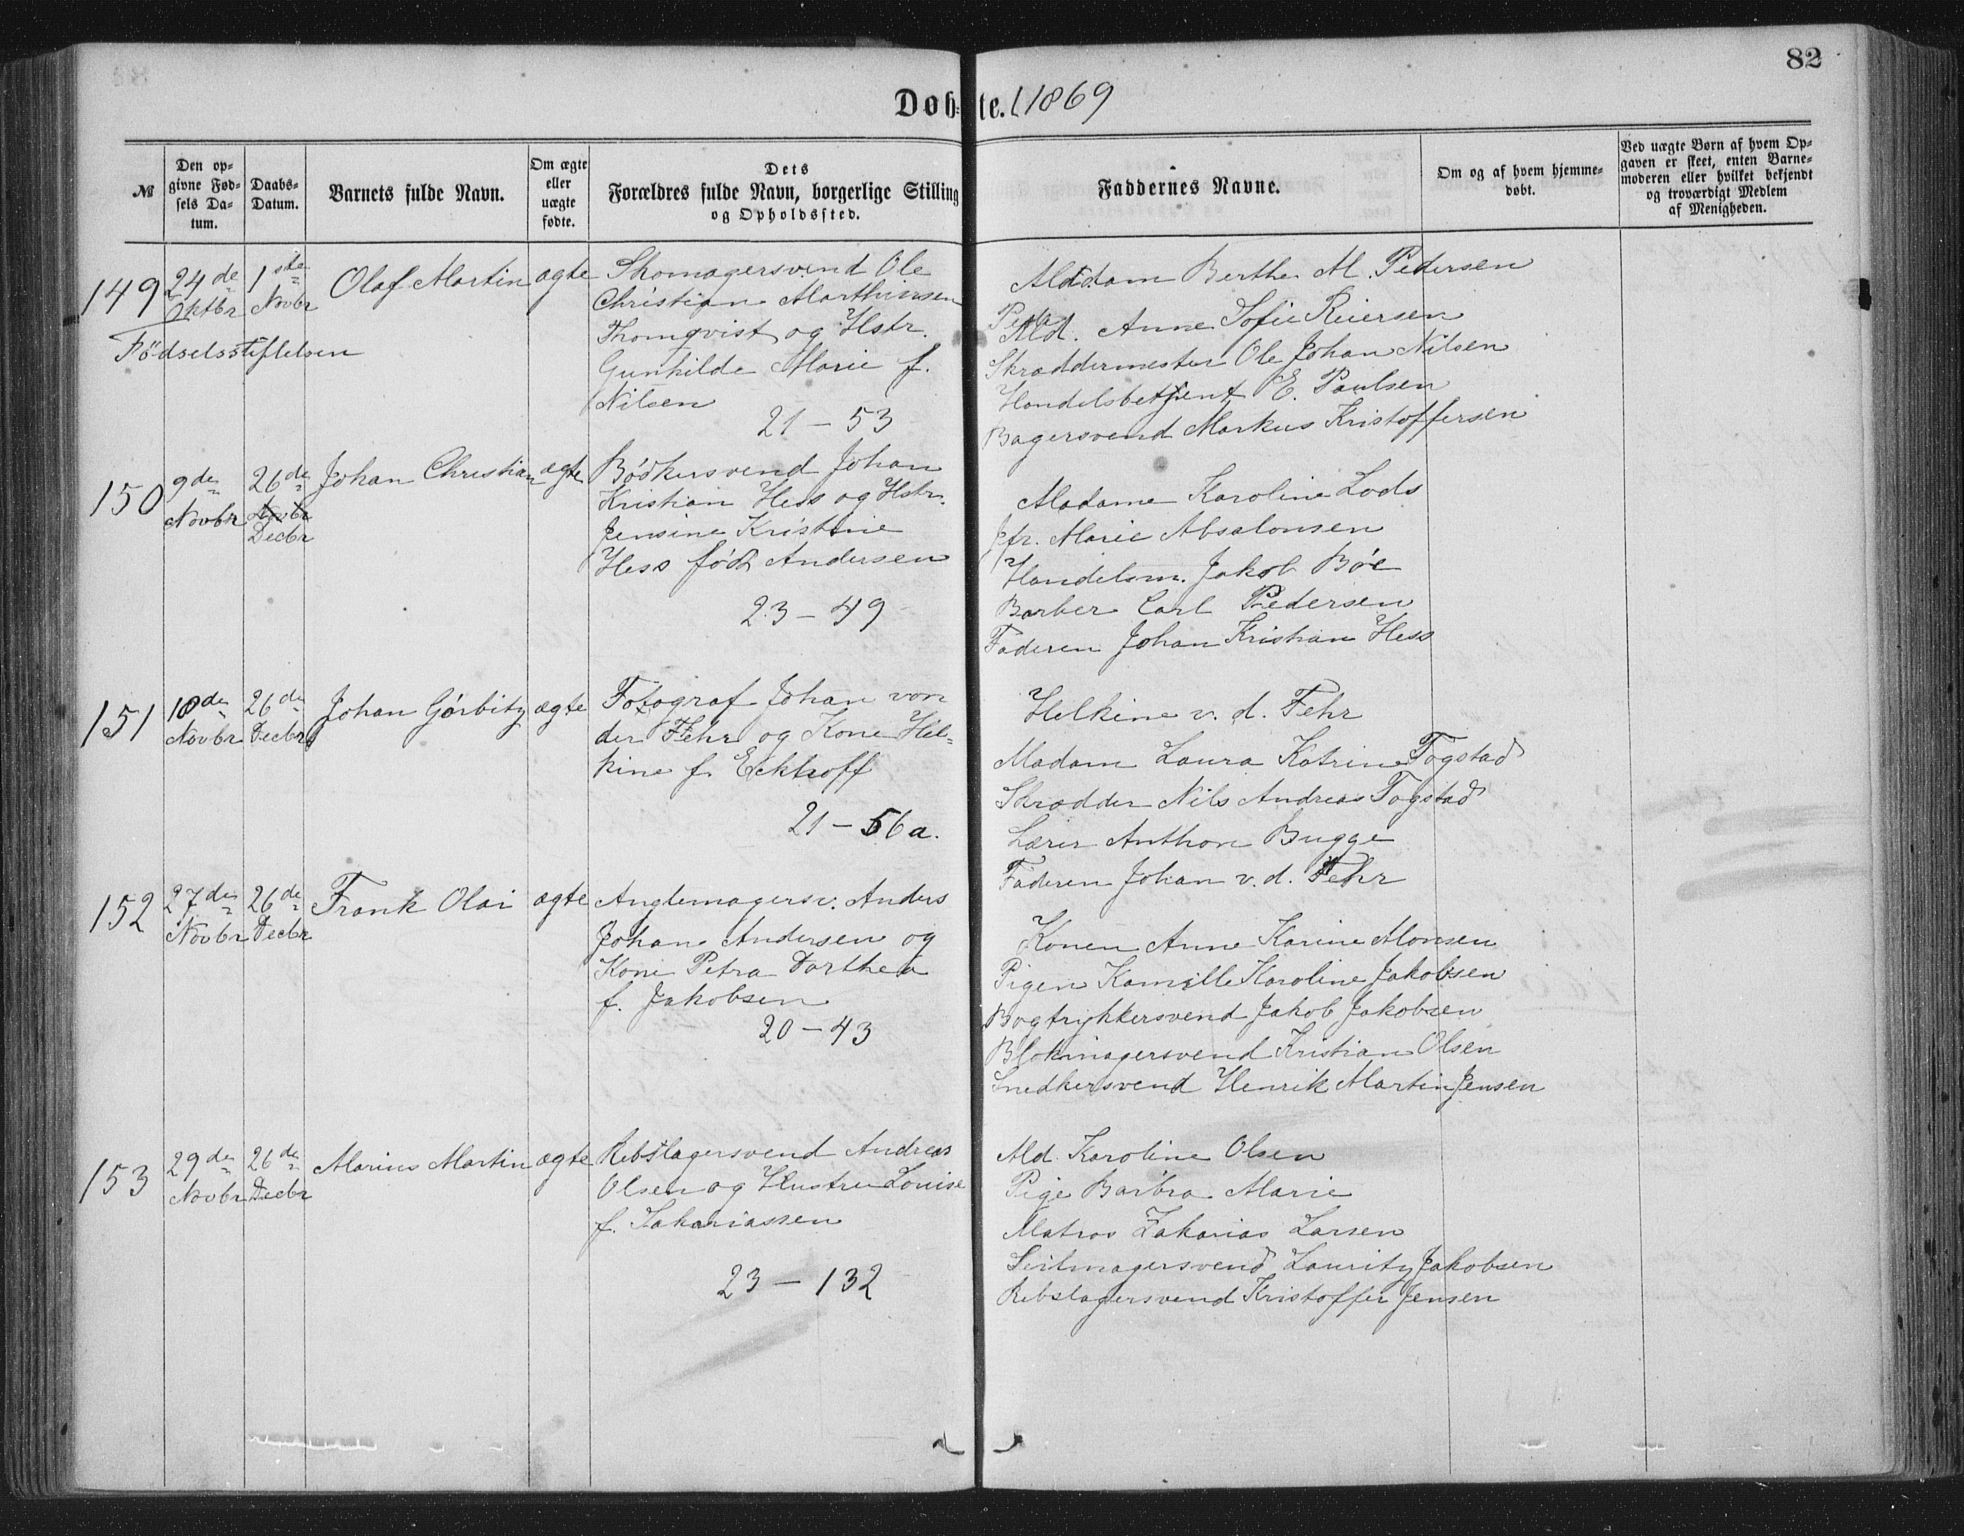 82
Døbte. 1869
№
Den opgivne Fødsels Datum.
Daabs-Datum.
Barnets fulde Navn.
Om ægte eller uægte fødte.
Dets Forældres fulde Navn, borgerlige Stilling og Opholdssted.
Faddernes Navne.
Om og af hvem hjemmedøbt.
Ved uægte Børn af hvem Opgaven er skeet, enten Barnemoderen eller hvilket bekjendt og troværdigt Medlem af Menigheden.
149
24de Oktbr
1ste Novbr
Olaf Martin
ægte
Fødselsstiftelsen
Skomagersvend Ole
Christian Marthinsen
Thomqvist og Hstr.
Gunhilde Marie f.
Nilsen
21 – 53
Madam Berthe M. Pedersen
Md. Anne Sofie Reiersen
Skræddermester Ole Johan Nilsen
Handelsbetjent E. Paulsen
Bagersvend Markus Kristoffersen
150
9de Novbr
26de Novbr Decbr
Johan Christian
ægte
Bødkersvend Johan
Kristian Hess og Hstr.
Jensine Kristine
Hess født Andersen
23 – 49
Madame Karoline Lods
Jfr. Marie Absalonsen
Handelsm. Jakob Bøe
Barber Carl Pedersen
Faderen Johan Kristian Hess
151
10de Novbr
26de Decbr
Johan Gørbitz
ægte
Fotograf Johan von
der Fehr og Kone Hel-
kine f. Eckhoff
21 – 56a.
Helkine v. d. Fehr
Madam Laura Katrine Fogstad
Skrædder Nils Andreas Fogstad
Lærer Anthon Bugge
Faderen Johan v. d. Fehr
152
27de Novbr
26de Decbr
Frank Olai
ægte
Anglemagersv. Anders
Johan Andersen og
Kone Petra Dorthea
f. Jakobsen
20 – 43
Konen Anne Karine Monsen
Pigen Kamille Karoline Jakobsen
Bogtrykkersvend Jakob Jakobsen
Blokmagersvend Kristian Olsen
Snedkersvend Henrik Martin Jensen
153
29de Novbr
26de Decbr
Marius Martin
ægte
Rebslagersvend Andreas
Olsen og Hustru Louise
f. Sakariassen
23 – 132
Md. Karoline Olsen
Pige Barbra Marie
Matros Zakarias Larsen
Seilmagersvend Lauritz Jakobsen
Rebslagersvend Kristoffer Jensen